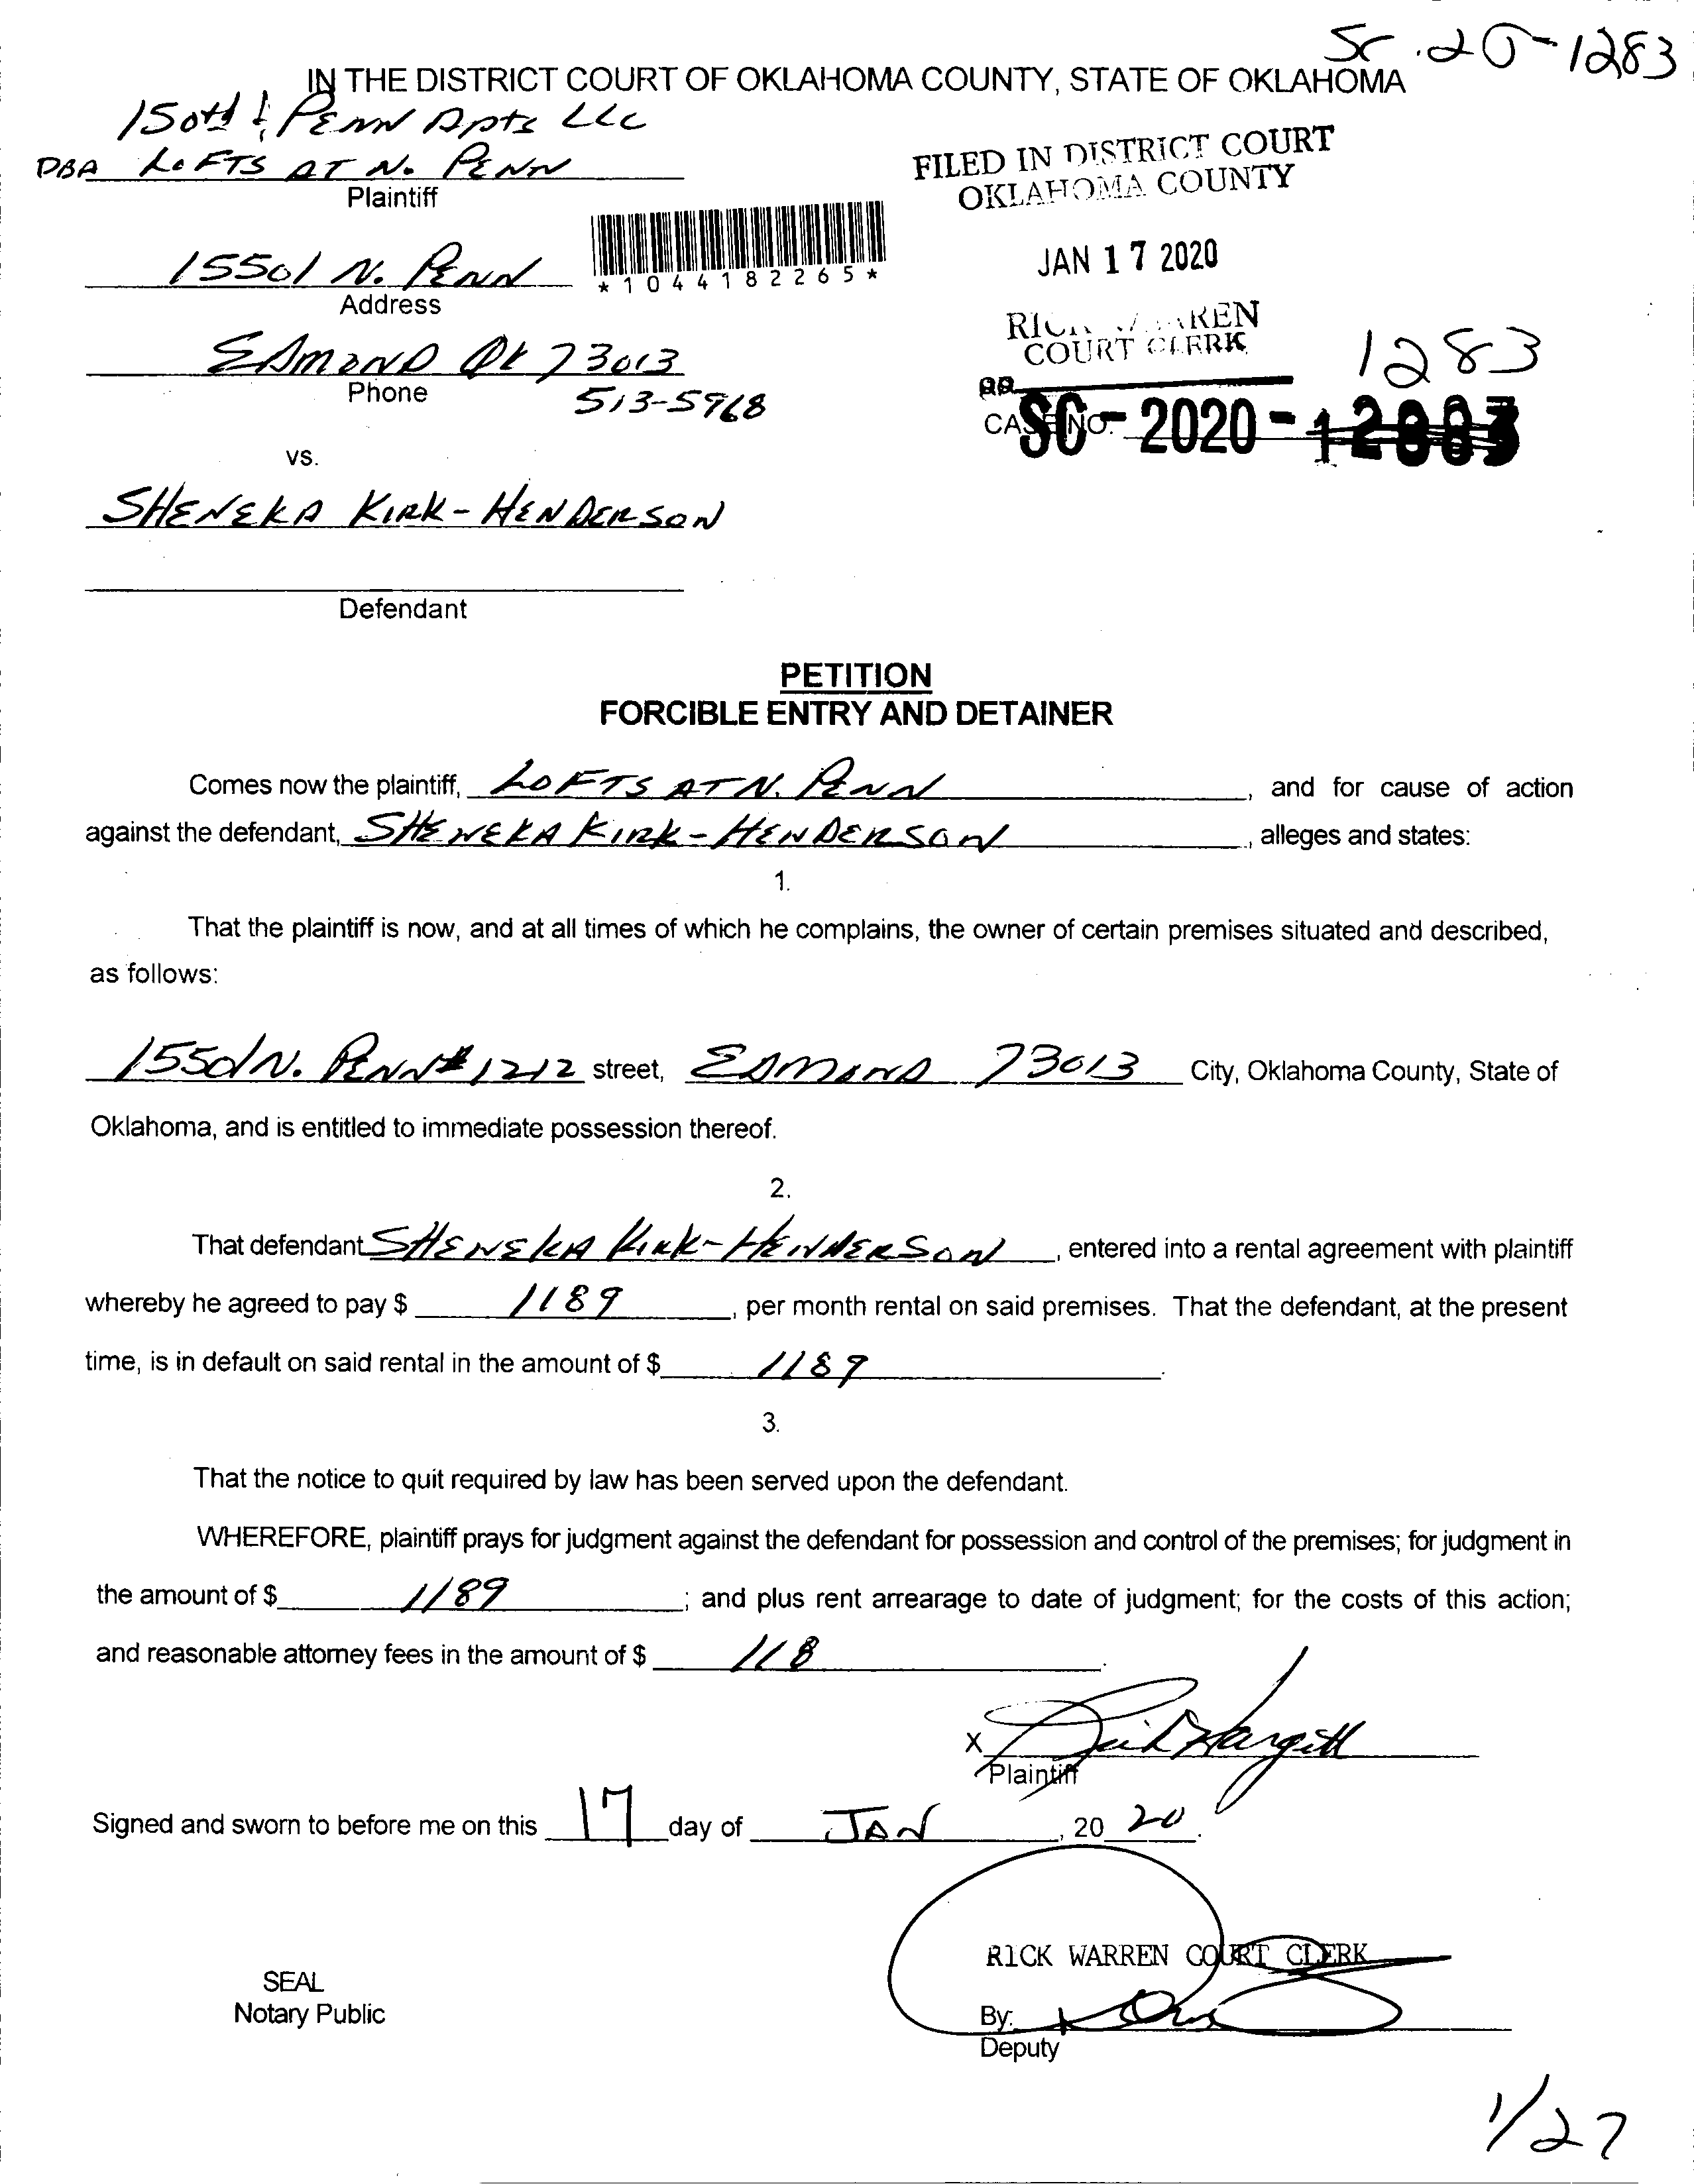 SC-20-1283
IN THE DISTRICT COURT OF OKLAHOMA COUNTY, STATE OF OKLAHOMA
150th & PENN Apts LLC
DBA LOFTS AT N. PENN
Plaintiff
FILED IN DISTRICT COURT
OKLAHOMA COUNTY
JAN 17 2020
RICK WARREN
COURT CLERK
*1044182265*
15501 N. PENN
Address
EDMOND OK 73013
Phone
513-5968
1283
CASE NO.
SC-2020-
vs.
SHENEKA KIRK-HENDERSON
Defendant
PETITION
FORCIBLE ENTRY AND DETAINER
Comes now the plaintiff, LOFTS AT N. PENN, and for cause of action
against the defendant, SHENEKA KIRK-HENDERSON, alleges and states:
1.
That the plaintiff is now, and at all times of which he complains, the owner of certain premises situated and described,
as follows:
15501 N. PENN #1212 street, EDMOND 73013 City, Oklahoma County, State of
Oklahoma, and is entitled to immediate possession thereof.
2.
That defendant SHENEKA KIRK-HENDERSON, entered into a rental agreement with plaintiff
whereby he agreed to pay $ 1189, per month rental on said premises. That the defendant, at the present
time, is in default on said rental in the amount of $ 1189.
3.
That the notice to quit required by law has been served upon the defendant.
WHEREFORE, plaintiff prays for judgment against the defendant for possession and control of the premises; for judgment in
the amount of $ 1189; and plus rent arrearage to date of judgment; for the costs of this action;
and reasonable attorney fees in the amount of $ 118.
X
Plaintiff
Signed and sworn to before me on this 17 day of JAN, 20 20.
RICK WARREN COURT CLERK
SEAL
Notary Public
By:
Deputy
1/27